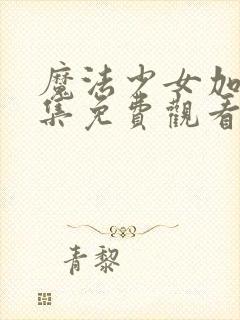 魔法少女加
集免費觀看
青黎